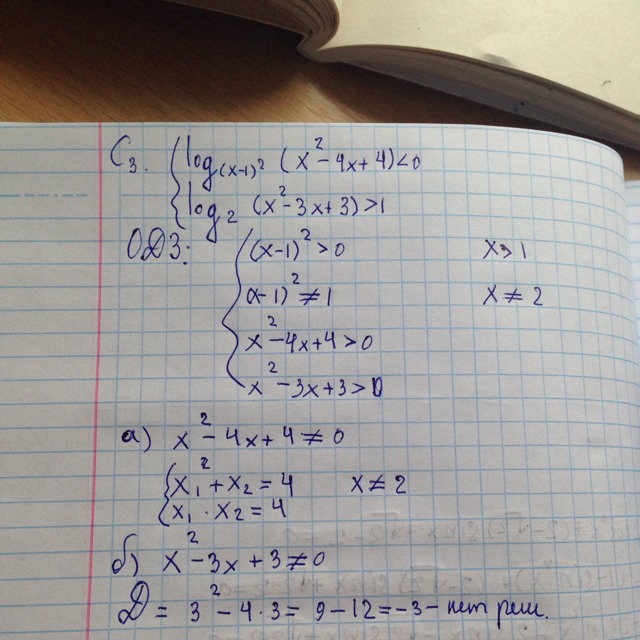 С3. { log_{(x-1)^2} (x^2-4x+4)<0
log_2 (x^2-3x+3)>1
ОДЗ: { (x-1)^2>0 x>1
(x-1)^2≠1 x≠2
x^2-4x+4>0
x^2-3x+3>0
а) x^2-4x+4≠0
{ x_1^2+x_2=4 x≠2
x_1·x_2=4
б) x^2-3x+3≠0
D=3^2-4·3=9-12=-3-нет реш.